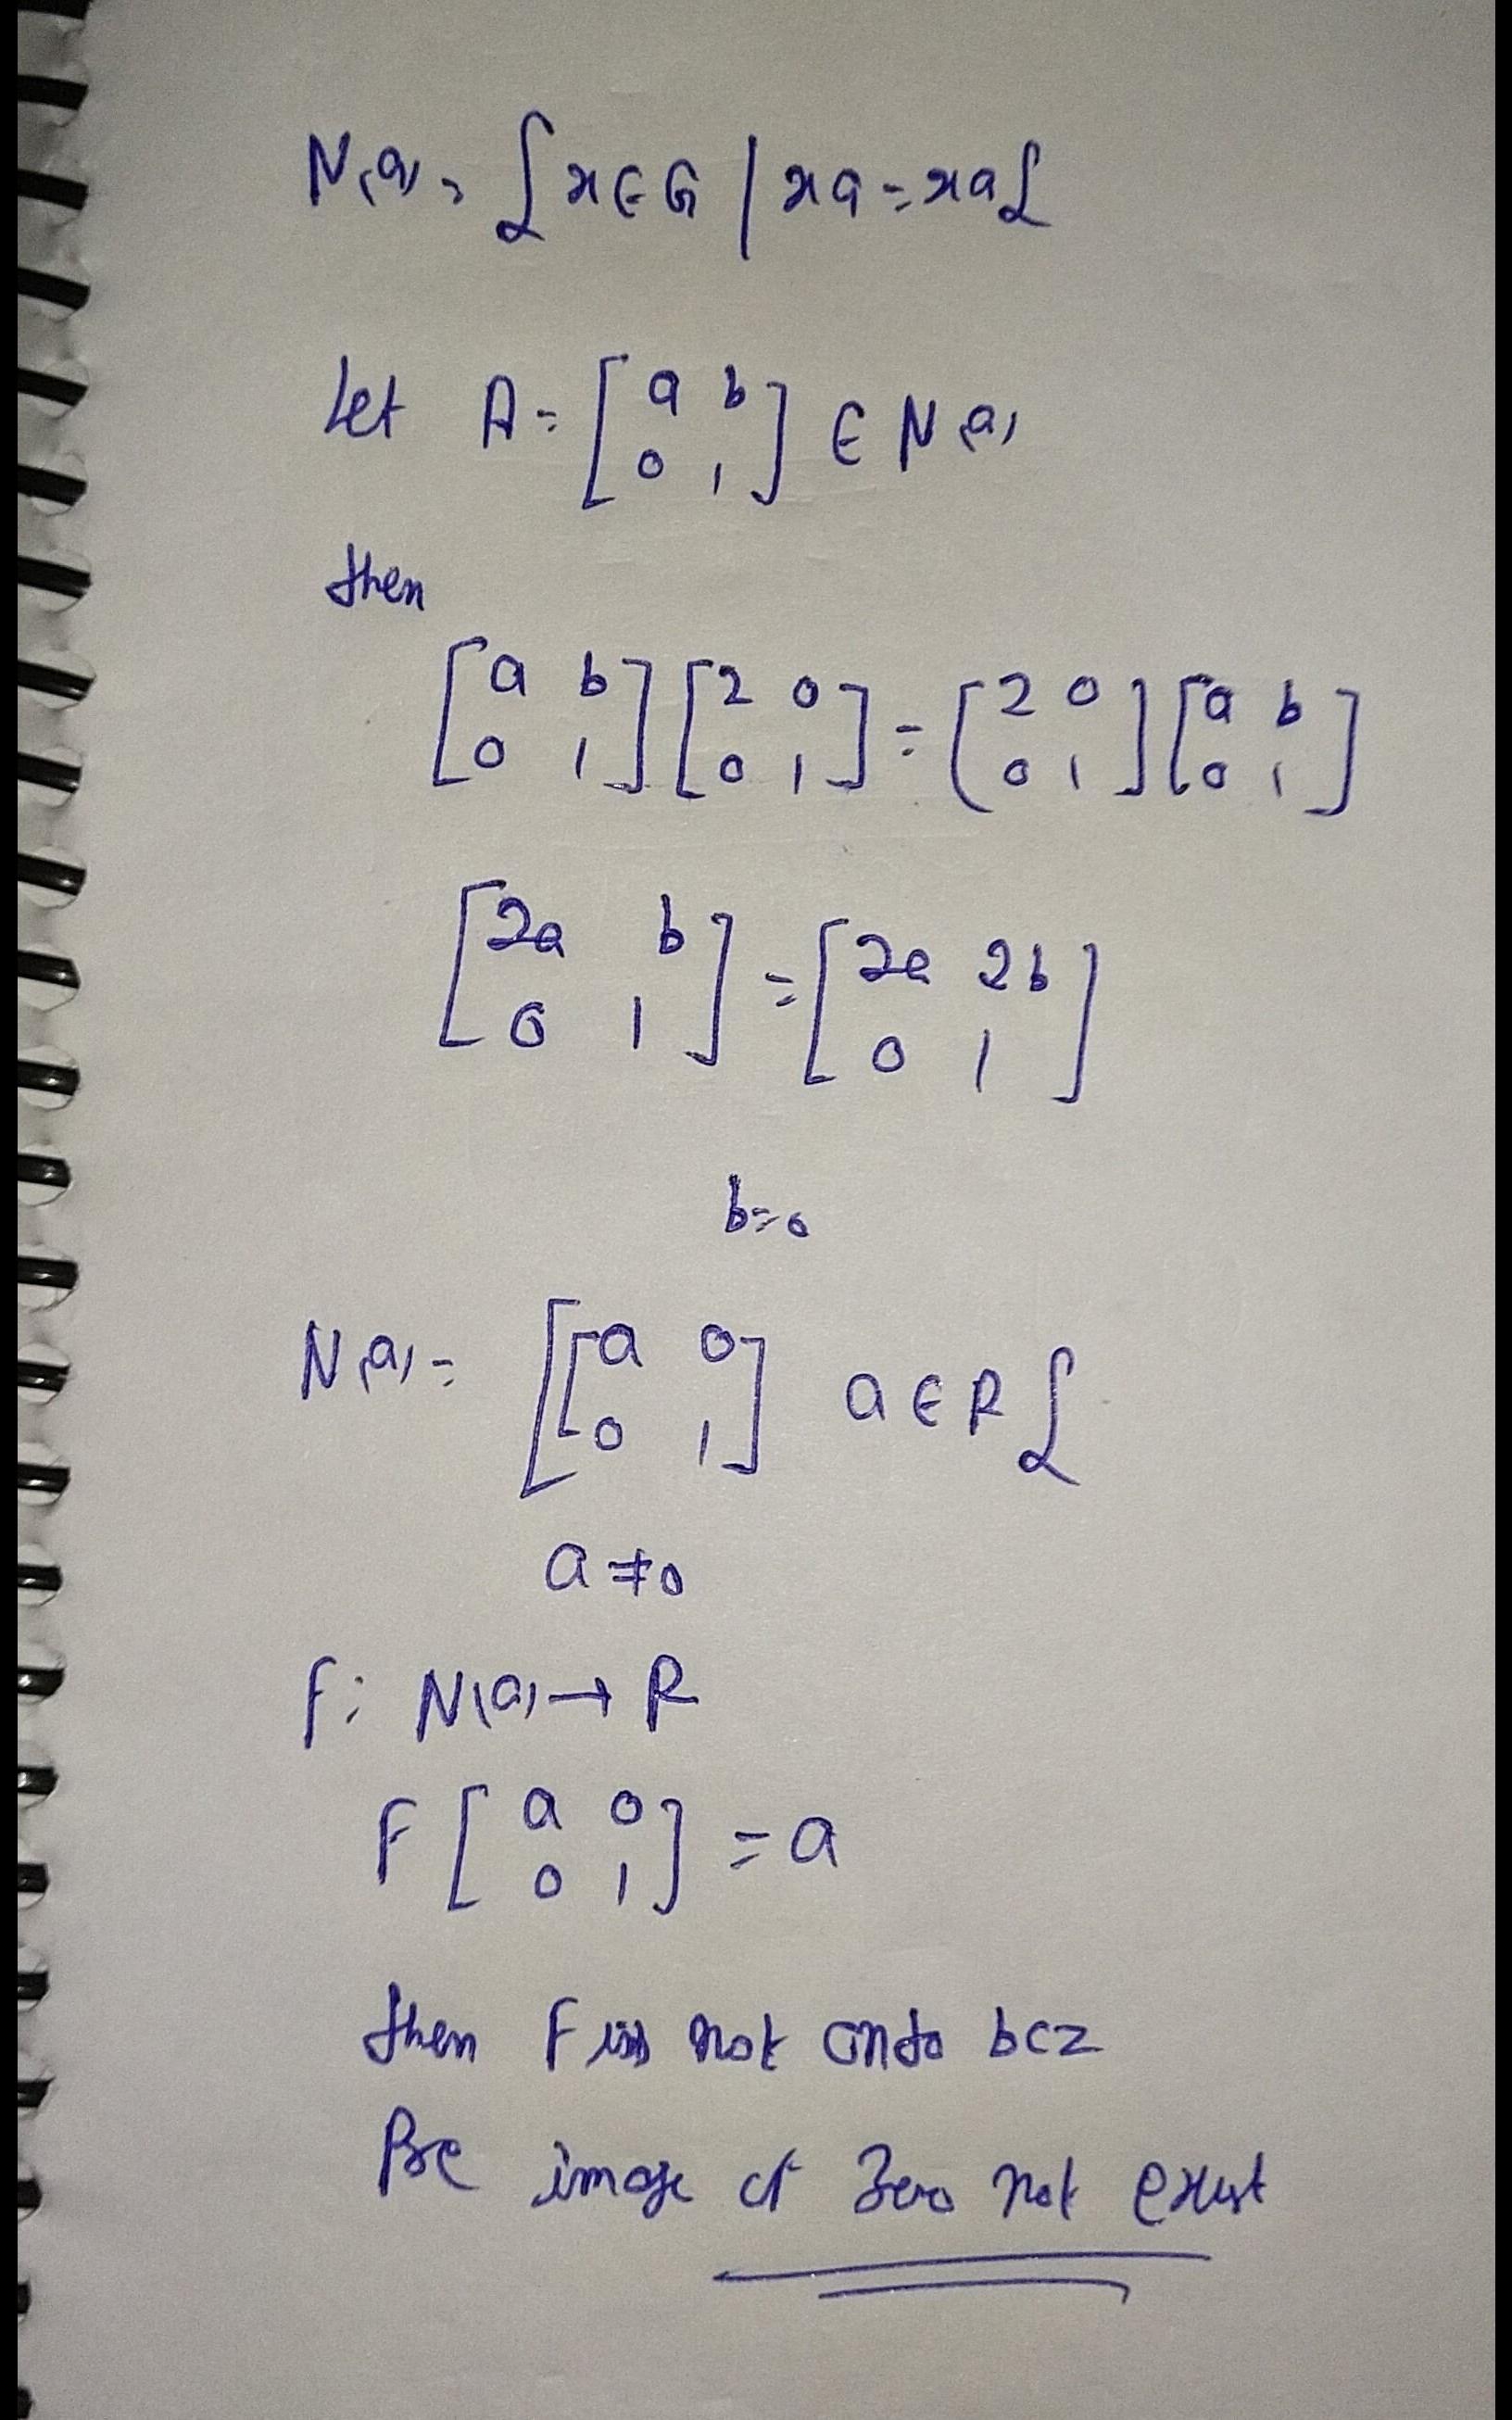 N(a) = {x∈G | xa = xa}
Let A = [a b; 0 1] ∈ N(a)
then
[a b; 0 1] [2 0; 0 1] = [2 0; 0 1] [a b; 0 1]
[2a b; 0 1] = [2a 2b; 0 1]
b=0
N(a) = {[a 0; 0 1] a∈R}
a≠0
f: N(a) → R
F [a 0; 0 1] = a
then f is not onto bcz
Pre image of Zero not exist